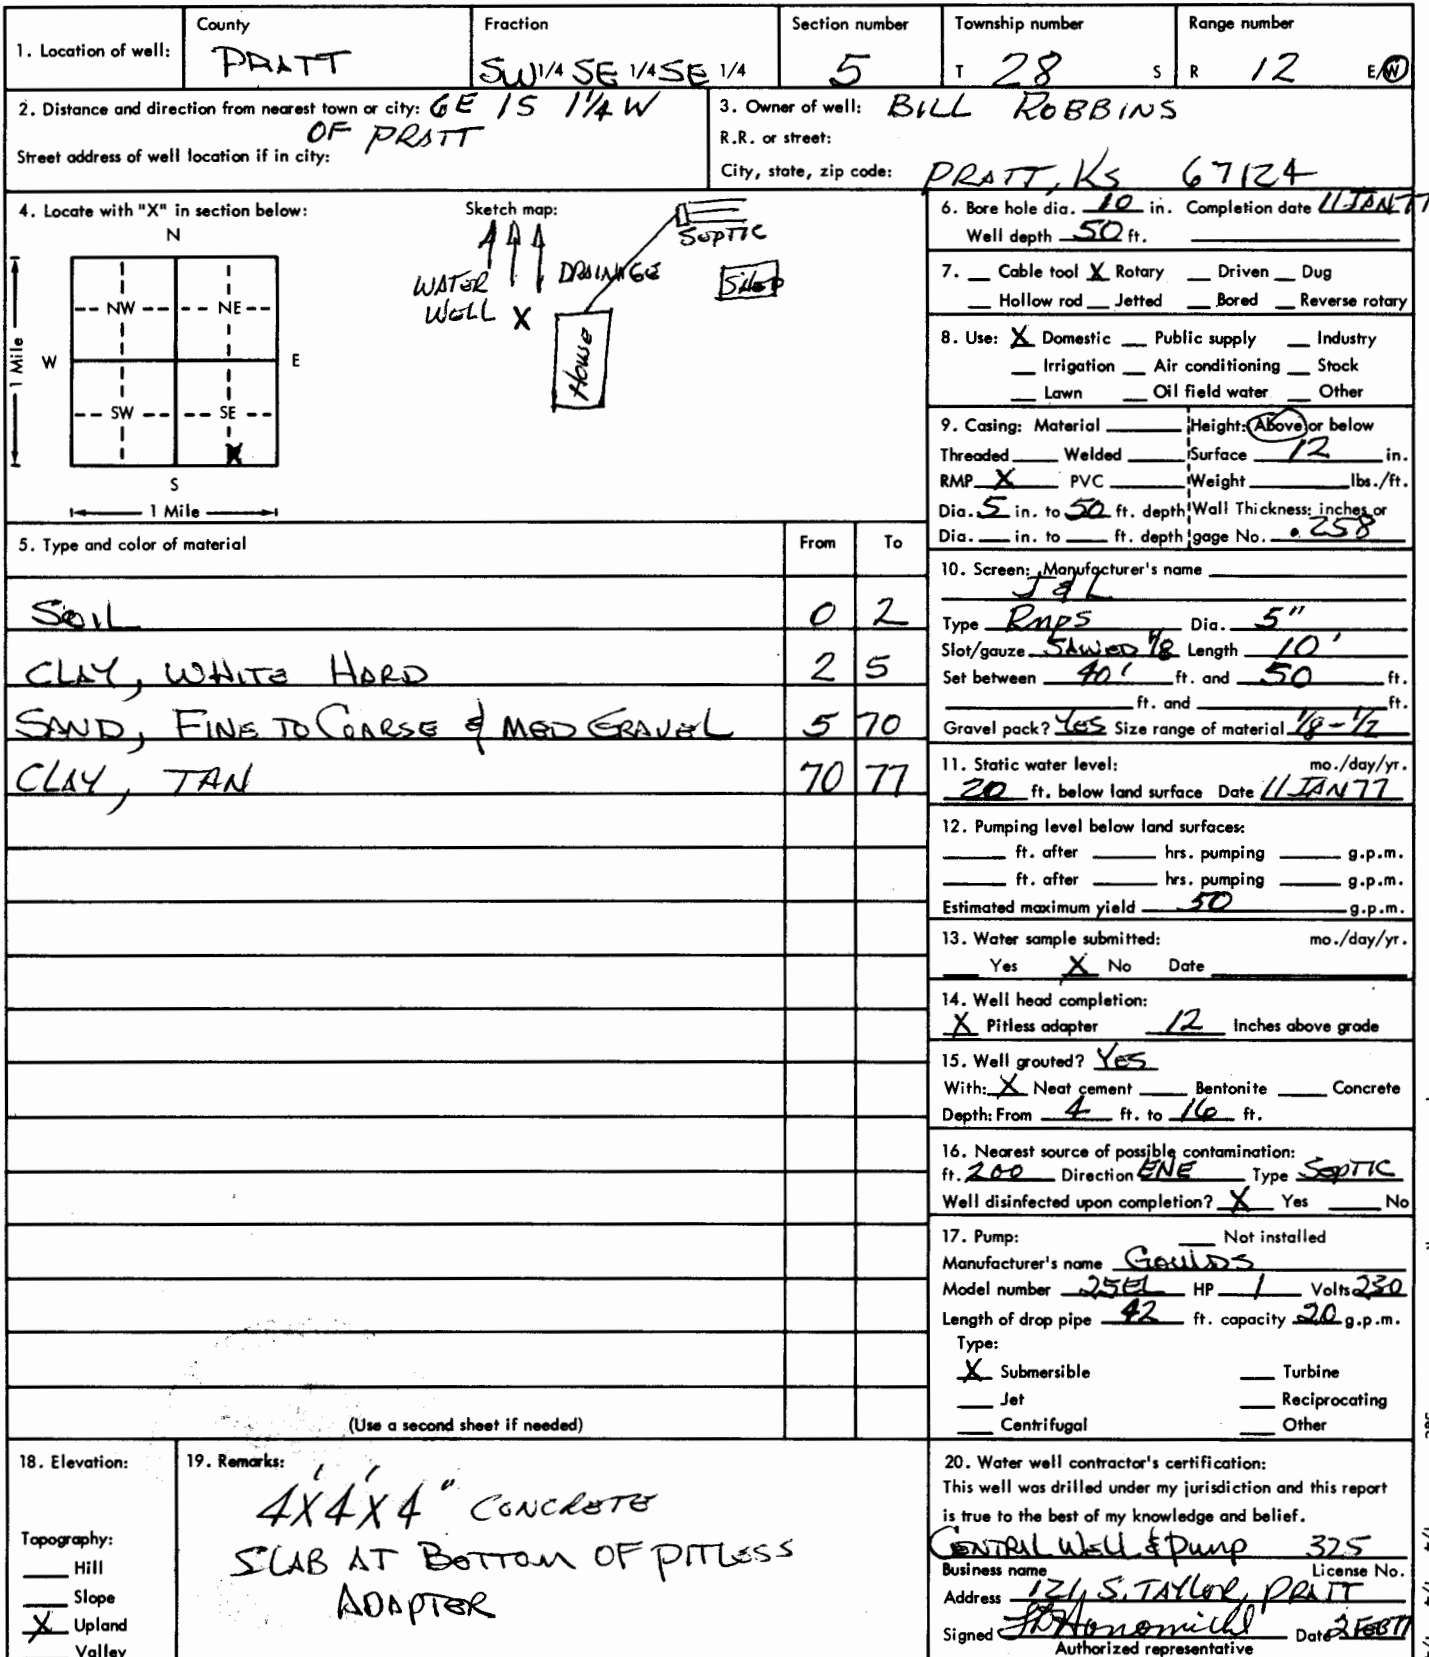 1. Location of well: County PRATT Fraction SW 1/4 SE 1/4 SE 1/4 Section number 5 Township number T 28 S Range number R 12 E/W
2. Distance and direction from nearest town or city: 6E 1S 1 1/4 W
OF PRATT
Street address of well location if in city:
3. Owner of well: BILL ROBBINS
R.R. or street:
City, state, zip code: PRATT, KS 67124
4. Locate with "X" in section below:
N
NW NE
W E
SW SE
X
S
1 Mile
1 Mile
Sketch map:
SEPTIC
WATER WELL X
DRAINAGE
SHED
HOUSE
5. Type and color of material From To
SOIL 0 2
CLAY, WHITE HARD 2 5
SAND, FINE TO COARSE & MED GRAVEL 5 70
CLAY, TAN 70 77
(Use a second sheet if needed)
6. Bore hole dia. 10 in. Completion date 11 JAN 77
Well depth 50 ft.
7. __ Cable tool X Rotary __ Driven __ Dug
__ Hollow rod __ Jetted __ Bored __ Reverse rotary
8. Use: X Domestic __ Public supply __ Industry
__ Irrigation __ Air conditioning __ Stock
__ Lawn __ Oil field water __ Other
9. Casing: Material ____ Height: Above or below
Threaded ____ Welded ____ Surface 12 in.
RMP X PVC ____ Weight ____ lbs./ft.
Dia. 5 in. to 50 ft. depth Wall Thickness: inches or
Dia. __ in. to __ ft. depth gage No. .258
10. Screen: Manufacturer's name
J & L
Type RMPS Dia. 5"
Slot/gauze SAWED 1/8 Length 10'
Set between 40' ft. and 50 ft.
____ ft. and ____ ft.
Gravel pack? YES Size range of material 1/8 - 1/2
11. Static water level: mo./day/yr.
20 ft. below land surface Date 11 JAN 77
12. Pumping level below land surfaces:
____ ft. after ____ hrs. pumping ____ g.p.m.
____ ft. after ____ hrs. pumping ____ g.p.m.
Estimated maximum yield 50 g.p.m.
13. Water sample submitted: mo./day/yr.
__ Yes X No Date ____
14. Well head completion:
X Pitless adapter 12 Inches above grade
15. Well grouted? YES
With: X Neat cement ____ Bentonite ____ Concrete
Depth: From 4 ft. to 16 ft.
16. Nearest source of possible contamination:
ft. 200 Direction ENE Type SEPTIC
Well disinfected upon completion? X Yes ____ No
17. Pump: ____ Not installed
Manufacturer's name GOULDS
Model number 25EL HP 1 Volts 230
Length of drop pipe 42 ft. capacity 20 g.p.m.
Type:
X Submersible __ Turbine
__ Jet __ Reciprocating
__ Centrifugal __ Other
18. Elevation:
Topography:
__ Hill
__ Slope
X Upland
__ Valley
19. Remarks:
4'X4'X4" CONCRETE
SLAB AT BOTTOM OF PITLESS
ADAPTER
20. Water well contractor's certification:
This well was drilled under my jurisdiction and this report
is true to the best of my knowledge and belief.
CENTRAL WELL & PUMP 325
Business name License No.
Address 121 S. TAYLOR, PRATT
Signed Honomichl Date 2 FEB 77
Authorized representative